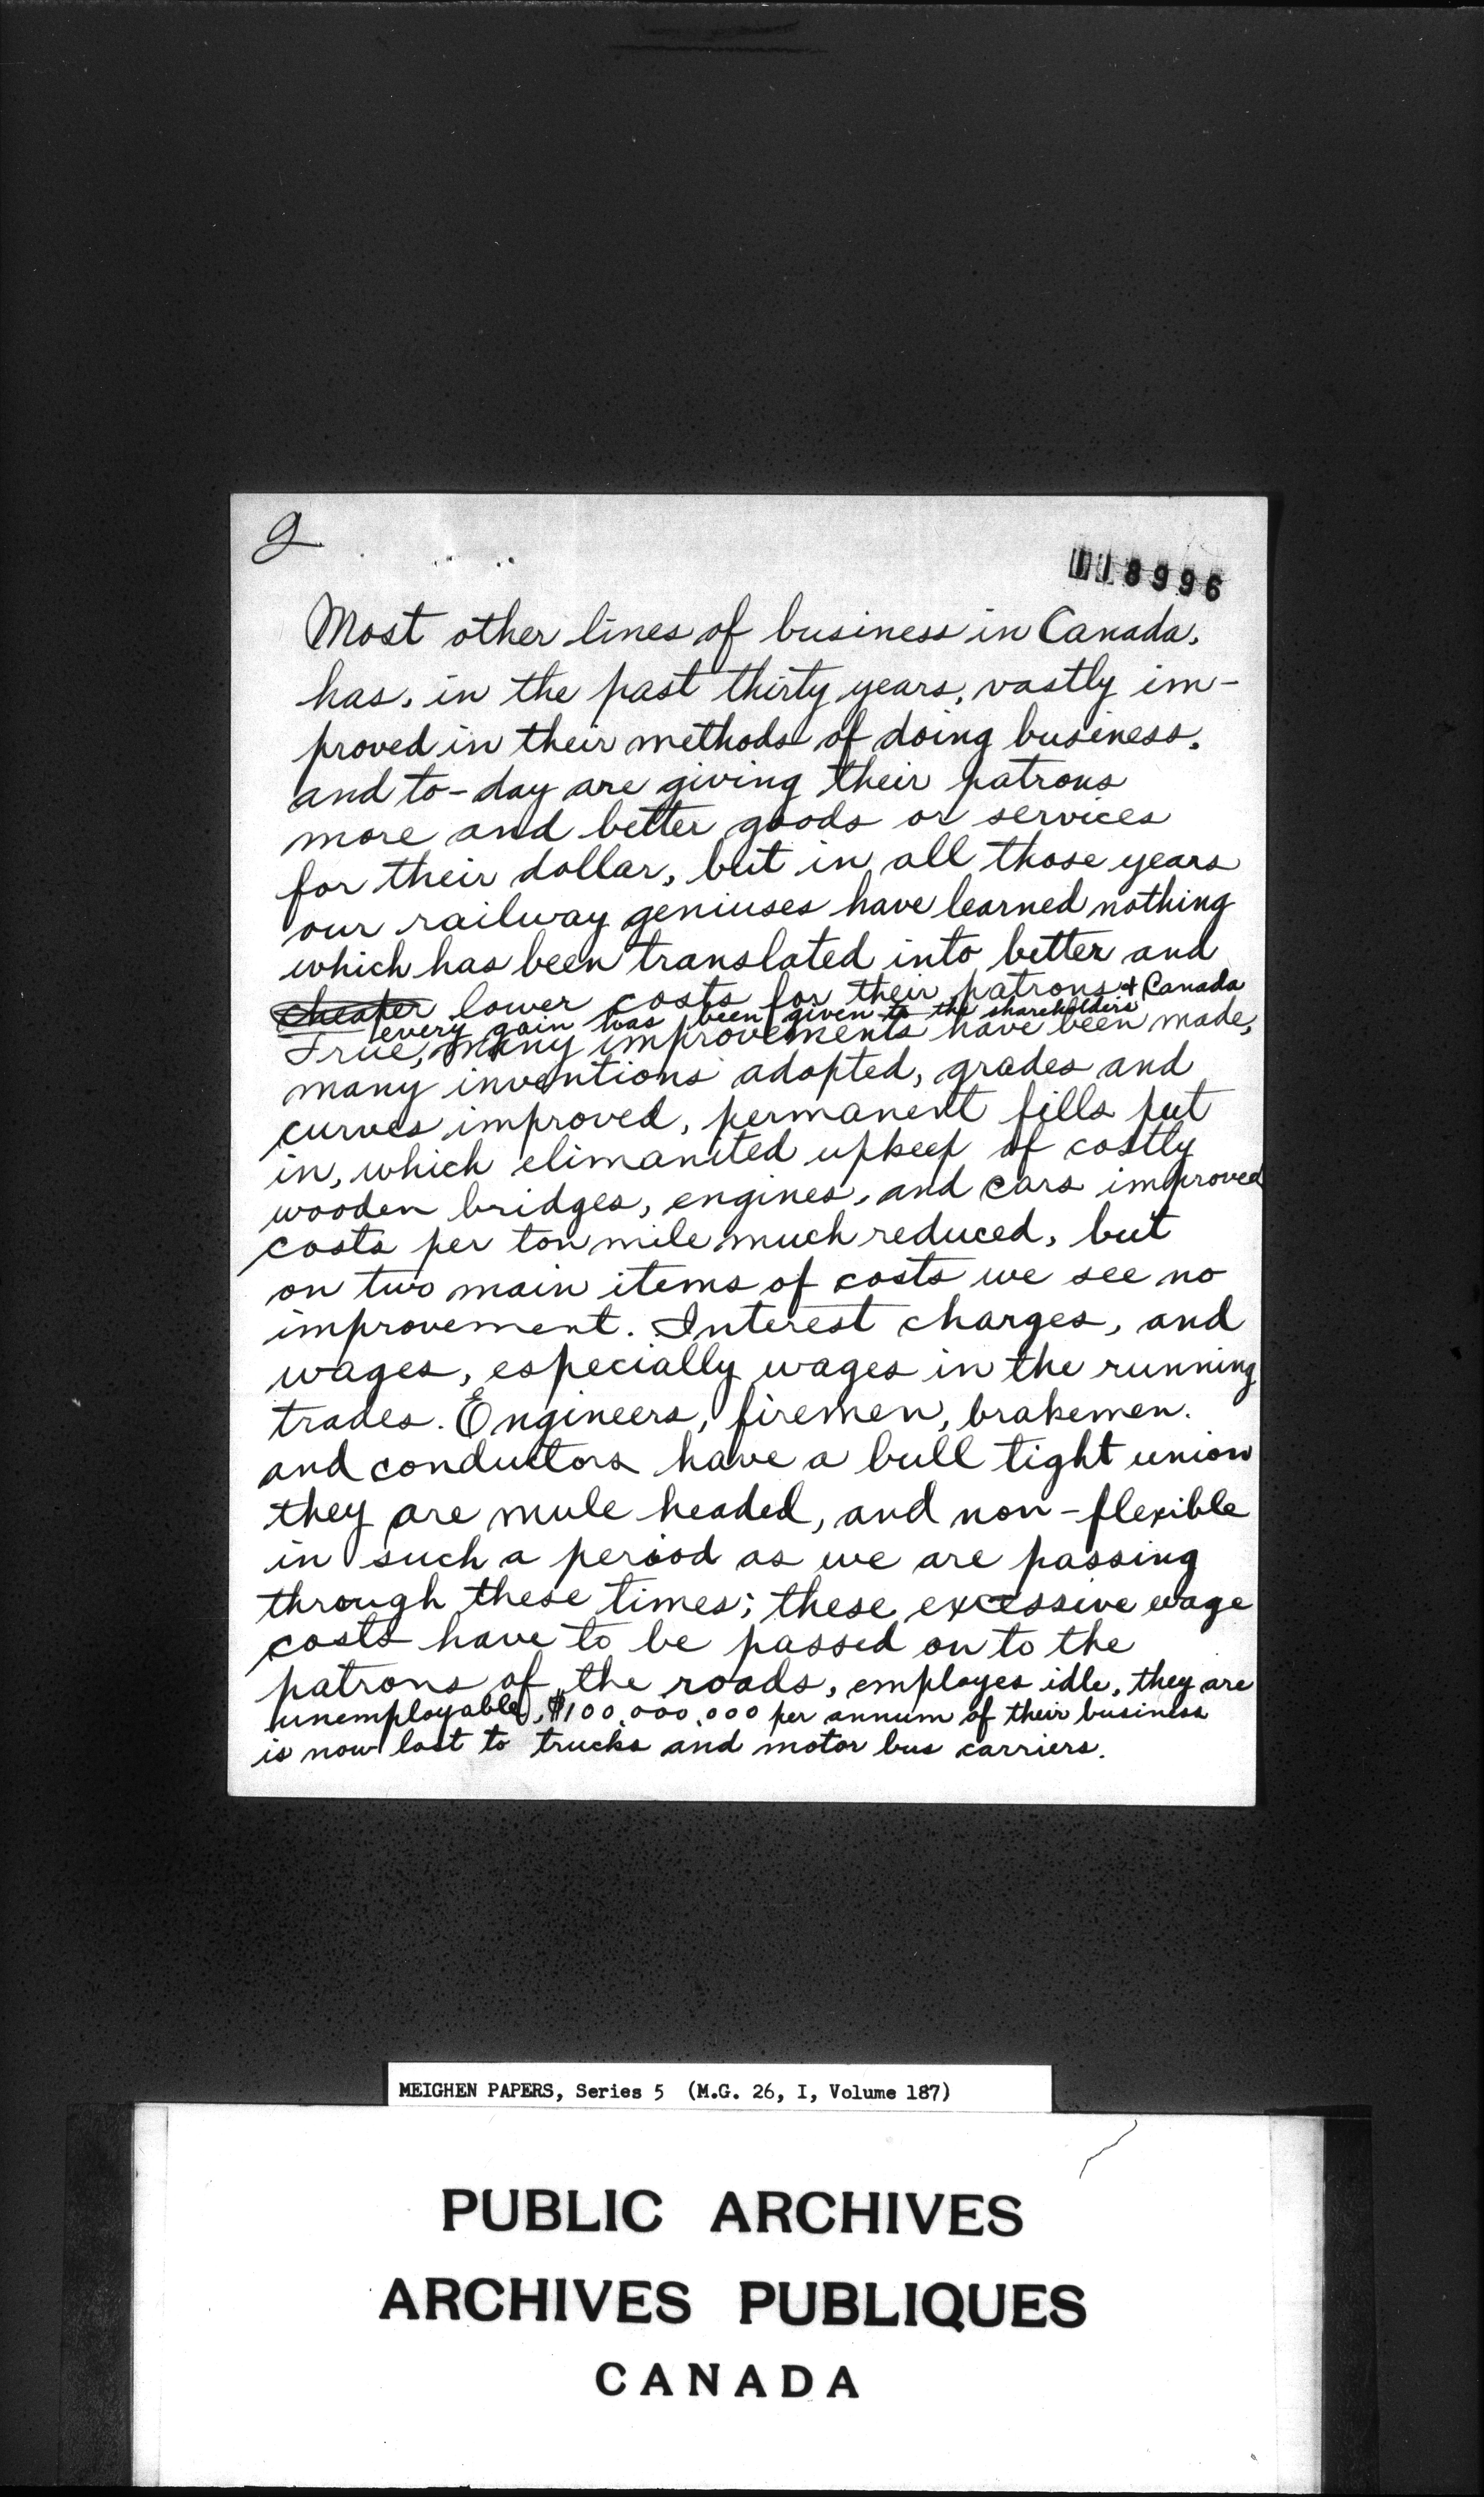 2
118996
Most other lines of business in Canada,
has, in the past thirty years, vastly im-
proved in their methods of doing business,
and to-day are giving their patrons
more and better goods or services
for their dollar, but in all those years
our railway geniuses have learned nothing
which has been translated into better and
cheaper lower costs for their patrons & Canada
every gain has been given to the shareholders
True, many improvements have been made,
many inventions adopted, grades and
curves improved, permanent fills put
in, which elimanited upkeep of costly
wooden bridges, engines, and cars improved
costs per ton mile much reduced, but
on two main items of costs we see no
improvement. Interest charges, and
wages, especially wages in the running
trades. Engineers, firemen, brakemen.
and conductors have a bull tight union
they are mule headed, and non-flexible
in such a period as we are passing
through these times; these excessive wage
costs have to be passed on to the
patrons of the roads, employes idle, they are
unemployable, $100,000,000 per annum of their business
is now lost to trucks and motor bus carriers.
MEIGHEN PAPERS, Series 5 (M.G. 26, I, Volume 187)
PUBLIC ARCHIVES
ARCHIVES PUBLIQUES
CANADA